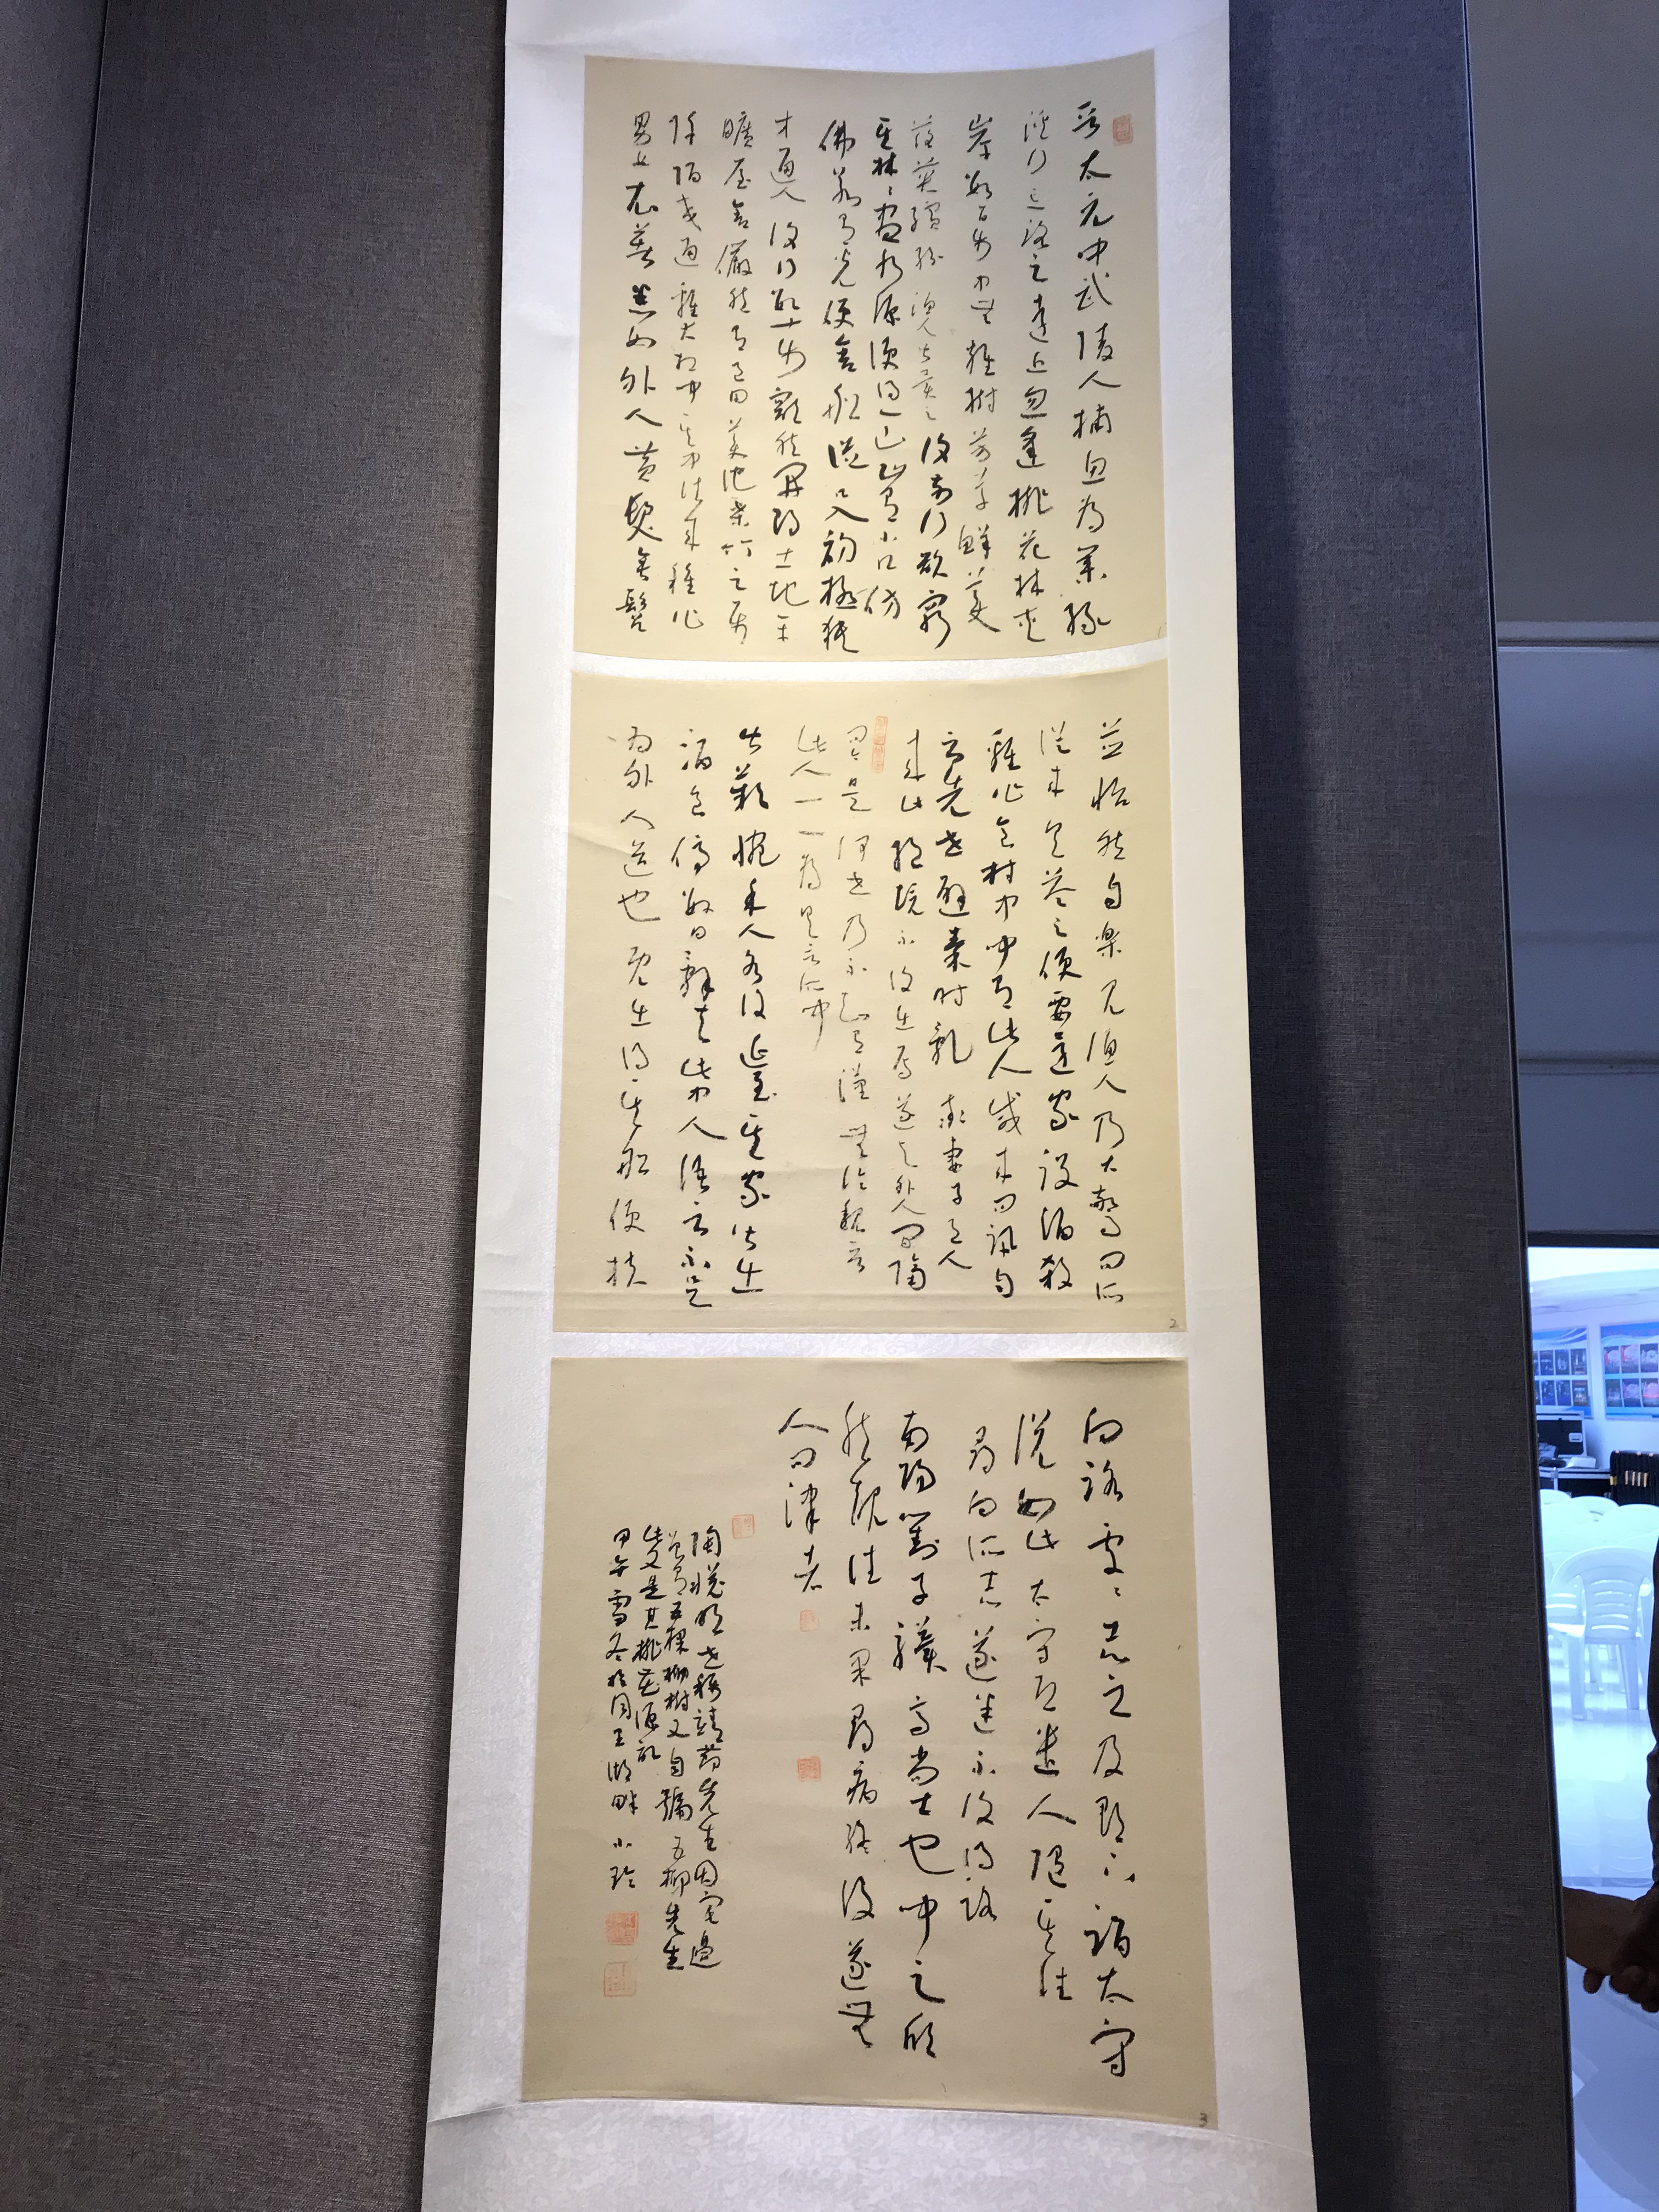 晉太元中武陵人捕魚為業緣
溪行忘路之遠近忽逢桃花林夾
岸數百步中無雜樹芳草鮮美
落英繽紛漁人甚異之復前行欲窮
其林〻盡水源便得一山山有小口仿
佛若有光便舍船從口入初極狹
才通人復行數十步豁然開朗土地平
曠屋舍儼然有良田美池桑竹之屬
阡陌交通雞犬相聞其中往來種作
男女衣著悉如外人黃髮垂髫
並怡然自樂見漁人乃大驚問所
從來具答之便要還家設酒殺
雞作食村中聞有此人咸來問訊自
云先世避秦時亂率妻子邑人
來此絕境不復出焉遂與外人間隔
問今是何世乃不知有漢無論魏晉
此人一一為具言所聞
皆歎惋餘人各復延至其家皆出
酒食停數日辭去此中人語云不足
為外人道也既出得其船便扶
2
向路處〻志之及郡下詣太守
說如此太守即遣人隨其往
尋向所志遂迷不復得路
南陽劉子驥高尚士也聞之欣
然規往未果尋病終後遂無
人問津者
陶淵明世稱靖節先生因宅邊
曾有五棵柳樹又自號五柳先生
此文是其桃花源記
甲午雪冬於玉湖畔小玲
3